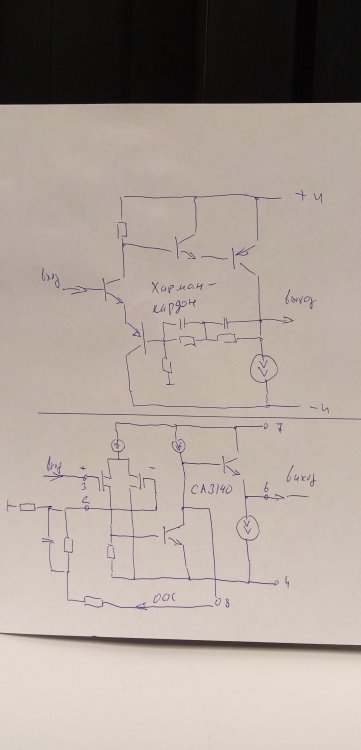 +U
вход
Харман-
кардон
выход
-U
7
вход
+
3
-
2
CA3140
6
выход
4
ООС
8